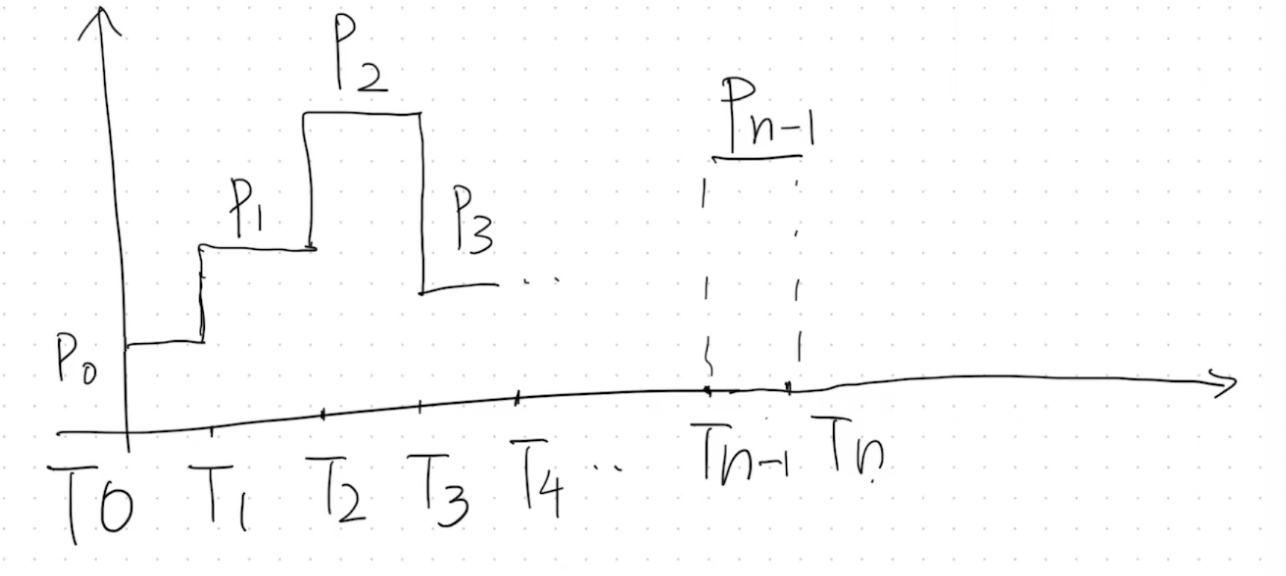 P2
Pn-1
P1
P3
..
P0
T0 T1 T2 T3 T4 .. Tn-1 Tn